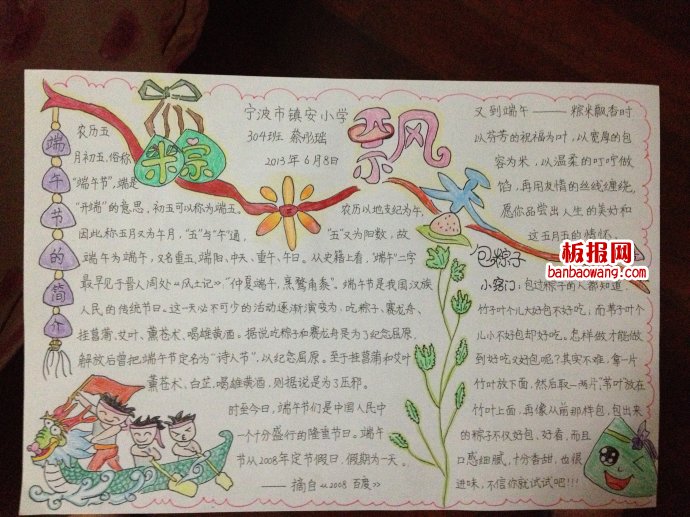 端午节的简介
粽
米
飘
香
宁波市镇安小学
304班 蔡彤瑶
2013年6月8日
农历五
月初五,俗称
"端午节",端是
"开端"的意思,初五可以称为端五。
农历以地支纪为午,
因此,称五月又为午月,"五"与"午"通,
"五"又为阳数,故
端午为端午,又名重五,端阳,中天、重午、午日。从史籍上看,"端午"二字
最早见于晋人周处《风土记》:"仲夏端午,烹鹜角黍"。端午节是我国汉族
人民的传统节日。这一天必不可少的活动逐渐演变为,吃粽子、赛龙舟、
挂菖蒲、艾叶、薰苍术、喝雄黄酒。据说吃粽子和赛龙舟是为了纪念屈原,
解放后曾把端午节定名为"诗人节",以纪念屈原。至于挂菖蒲和艾叶
薰苍术、白芷,喝雄黄酒,则据说是为了压邪。
时至今日,端午节们是中国人民中
一个十分盛行的隆重节日。端午
节从2008年定节假日,假期为一天。
——摘自《2008百度》
又到端午——粽米飘香时
以芬芳的祝福为叶,以宽厚的包
容为米,以温柔的叮咛做
馅,再用友情的丝线缠绕,
愿你品尝出人生的美好和
这五月五的情怀。
板报网
banbaowang.com
包粽子
小窍门:包过粽子的人都知道,
竹子叶个儿大好包不好吃,而苇子叶个
儿小不好包却好吃。怎样做才能做
到好吃又好包呢?其实不难,拿一片
竹叶放下面,然后取一两片,苇叶放在
竹叶上面,再像从前那样包,包出来
的粽子不仅好包,好看,而且
口感细腻,十分香甜,也很
进味,不信你就试试吧!!!